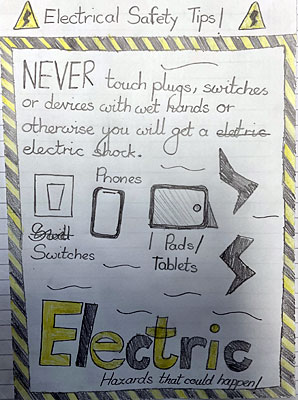 Electrical Safety Tips!
NEVER touch plugs, switches
or devices with wet hands or
otherwise you will get a eletric
electric shock.
Phones
Switches
I Pads/
Tablets
Electric
Hazards that could happen!